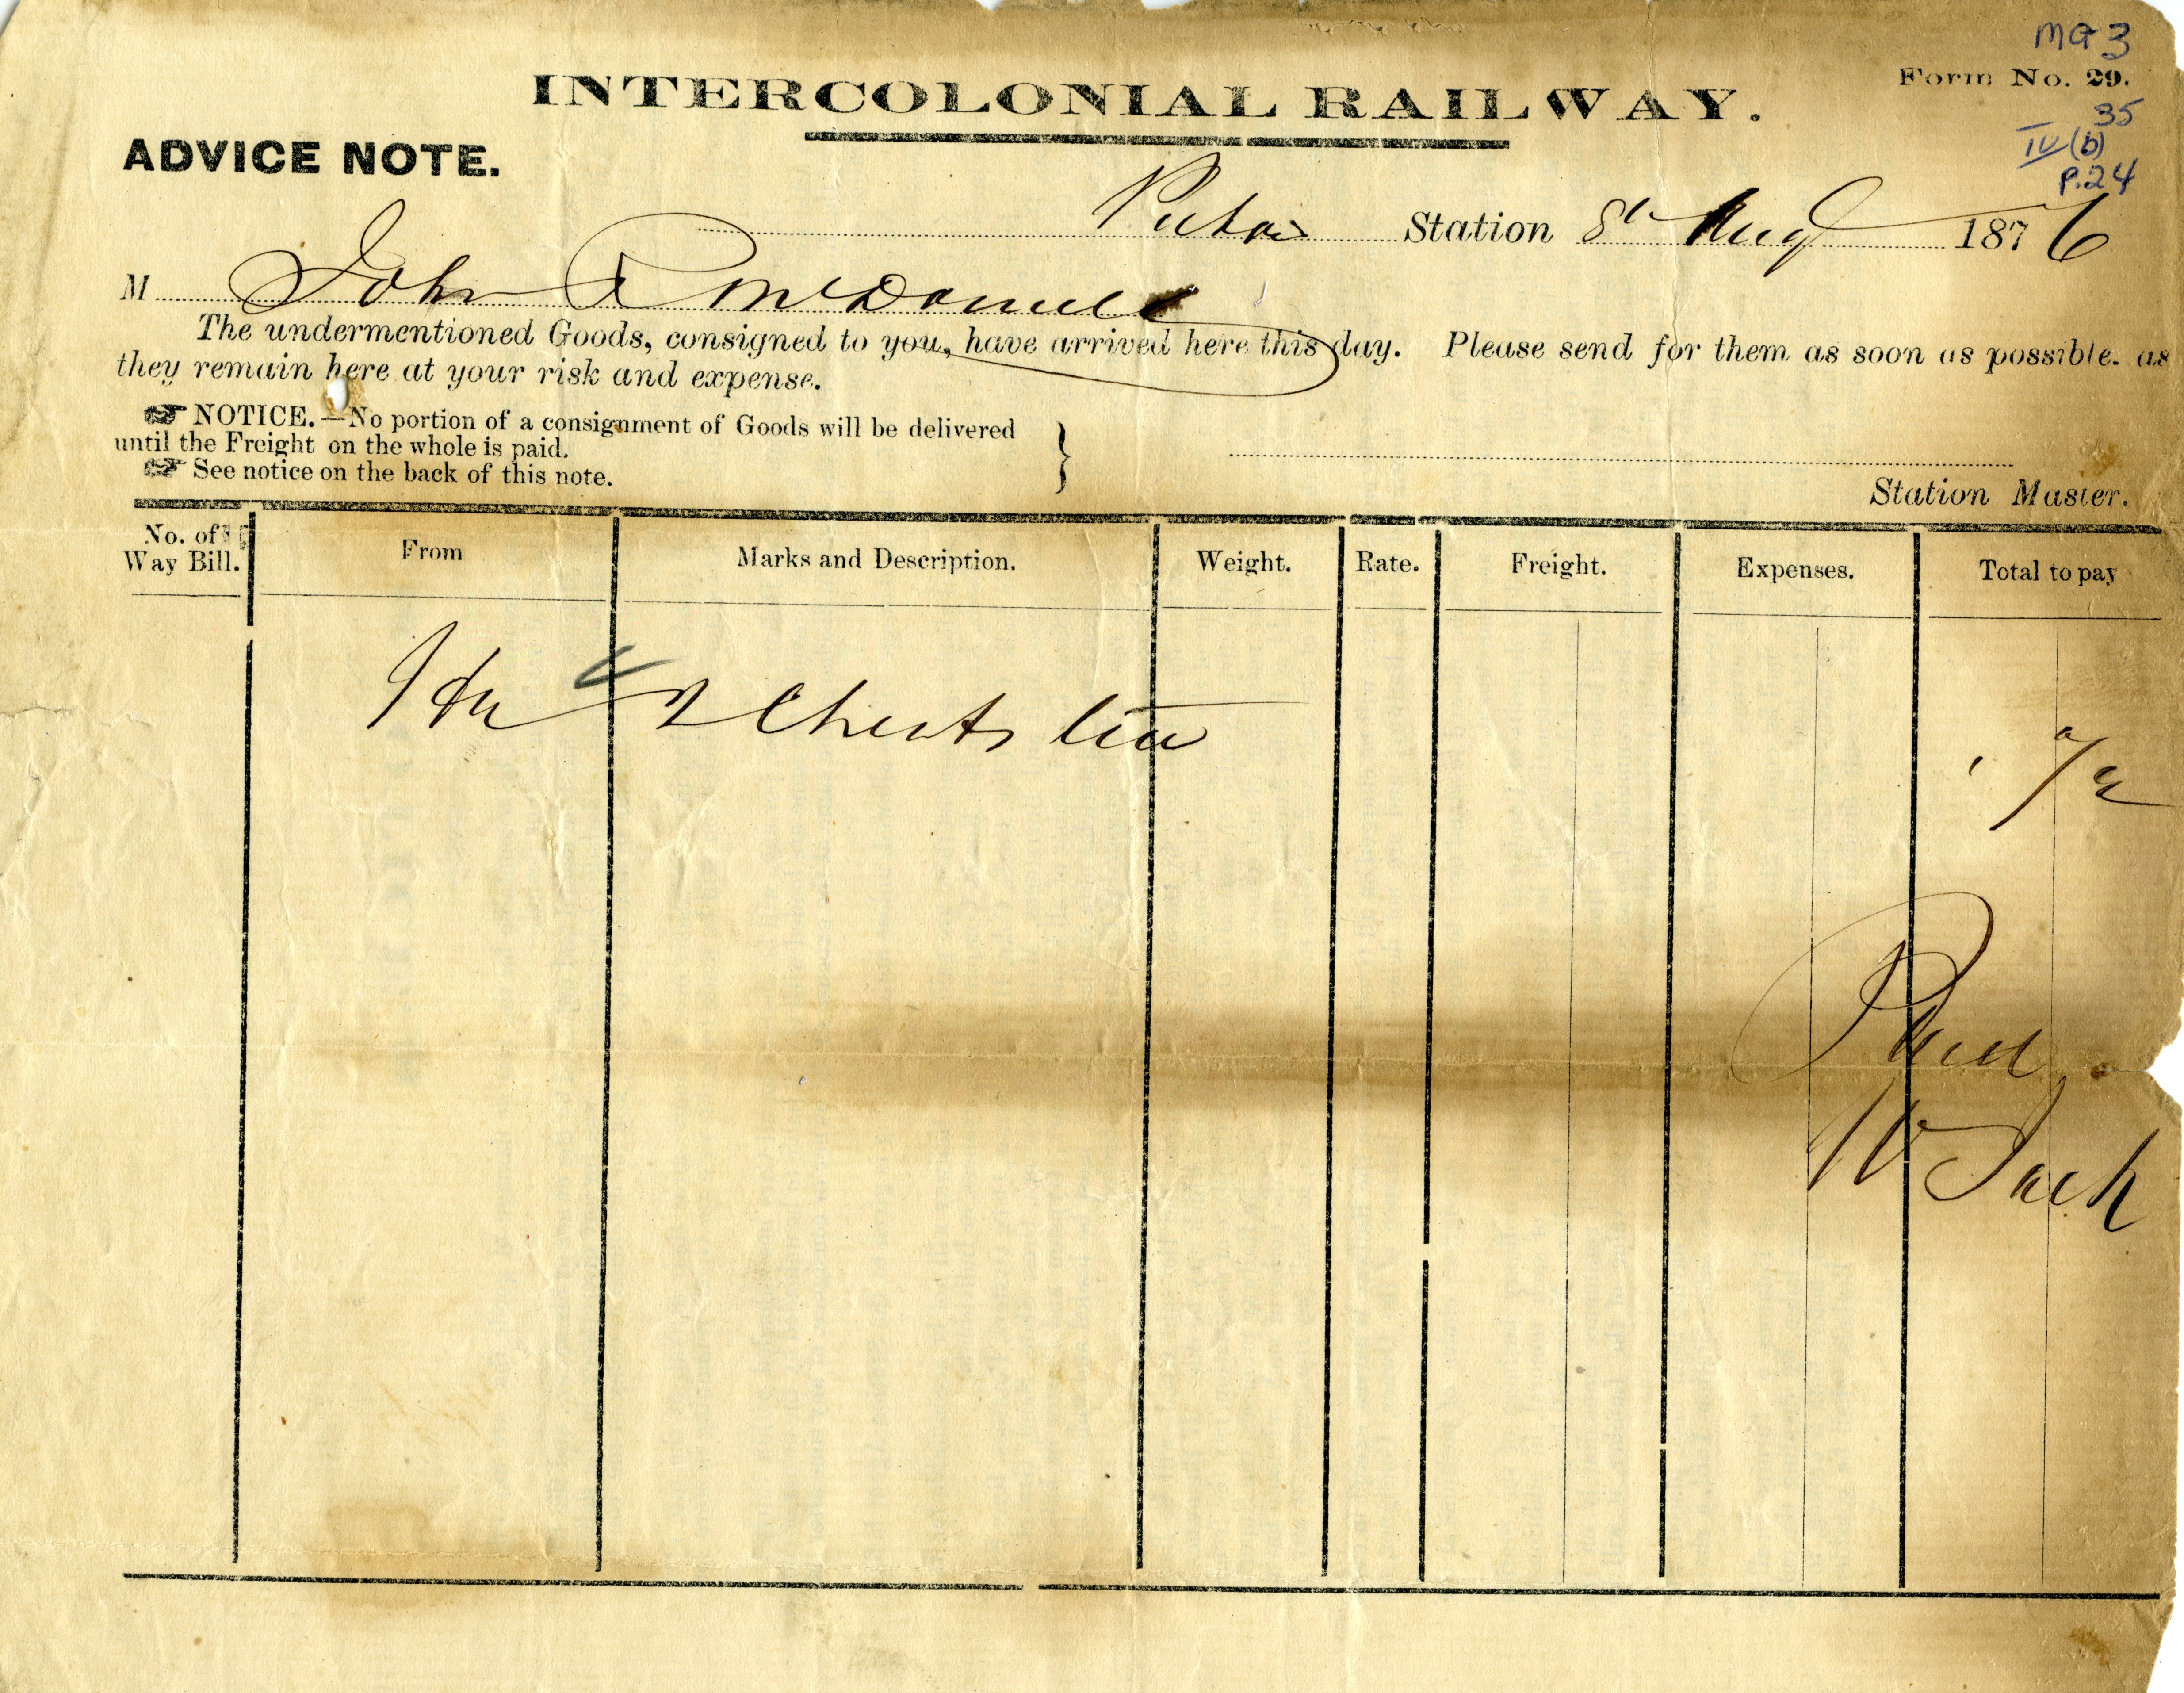 MG 3
INTERCOLONIAL RAILWAY.
Form No. 29.
35
IV (b)
P.24
ADVICE NOTE.
Pictou Station 8th Aug 1876
M John R McDonald
The undermentioned Goods, consigned to you, have arrived here this day. Please send for them as soon as possible. as
they remain here at your risk and expense.
☞ NOTICE.—No portion of a consignment of Goods will be delivered
until the Freight on the whole is paid.
☞ See notice on the back of this note.
Station Master.
No. of Way Bill. From Marks and Description. Weight. Rate. Freight. Expenses. Total to pay
2 Chests tea
Paid
W Jack